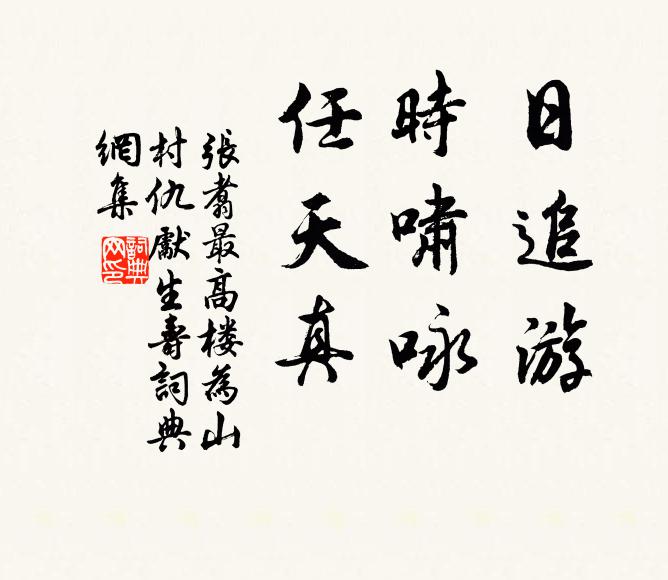 日追游
時嘯咏
任天真
張翥最高楼為山
村仇獻生壽詞典
網集
詞典
网印